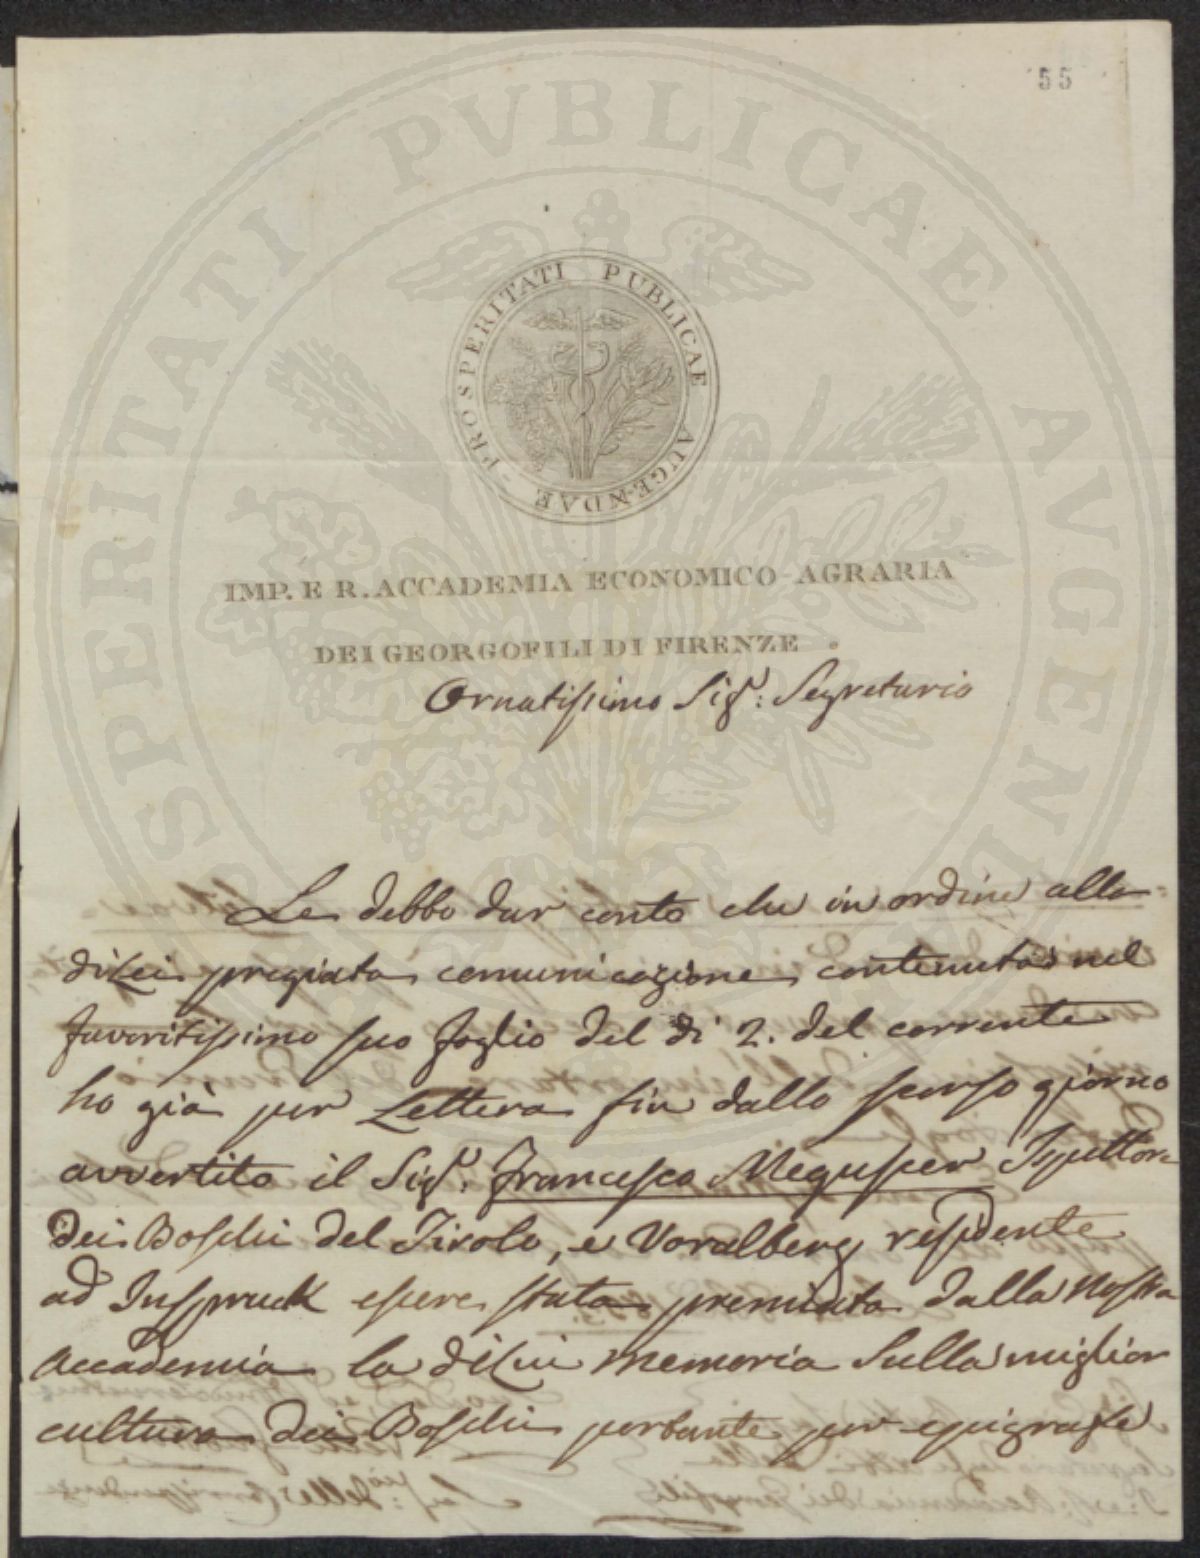 55
PROSPERITATI PUBLICAE AUGENDAE
IMP. E R. ACCADEMIA ECONOMICO-AGRARIA
DEI GEORGOFILI DI FIRENZE.
Ornatissimo Sigr: Segretario
Le debbo dar conto che in ordine alla
di Lei pregiata comunicazione contenuta nel
favoritissimo suo foglio del dì 2. del corrente
ho già per Lettera fin dallo scorso giorno
avvertito il Sigr: Francesco Negusper Ispettore
dei Boschi del Tirolo, e Voralberg residente
ad Inspruck essere stata premiata dalla Nostra
Accademia la di Lui Memoria sulla miglior
cultura dei Boschi portante per epigrafe